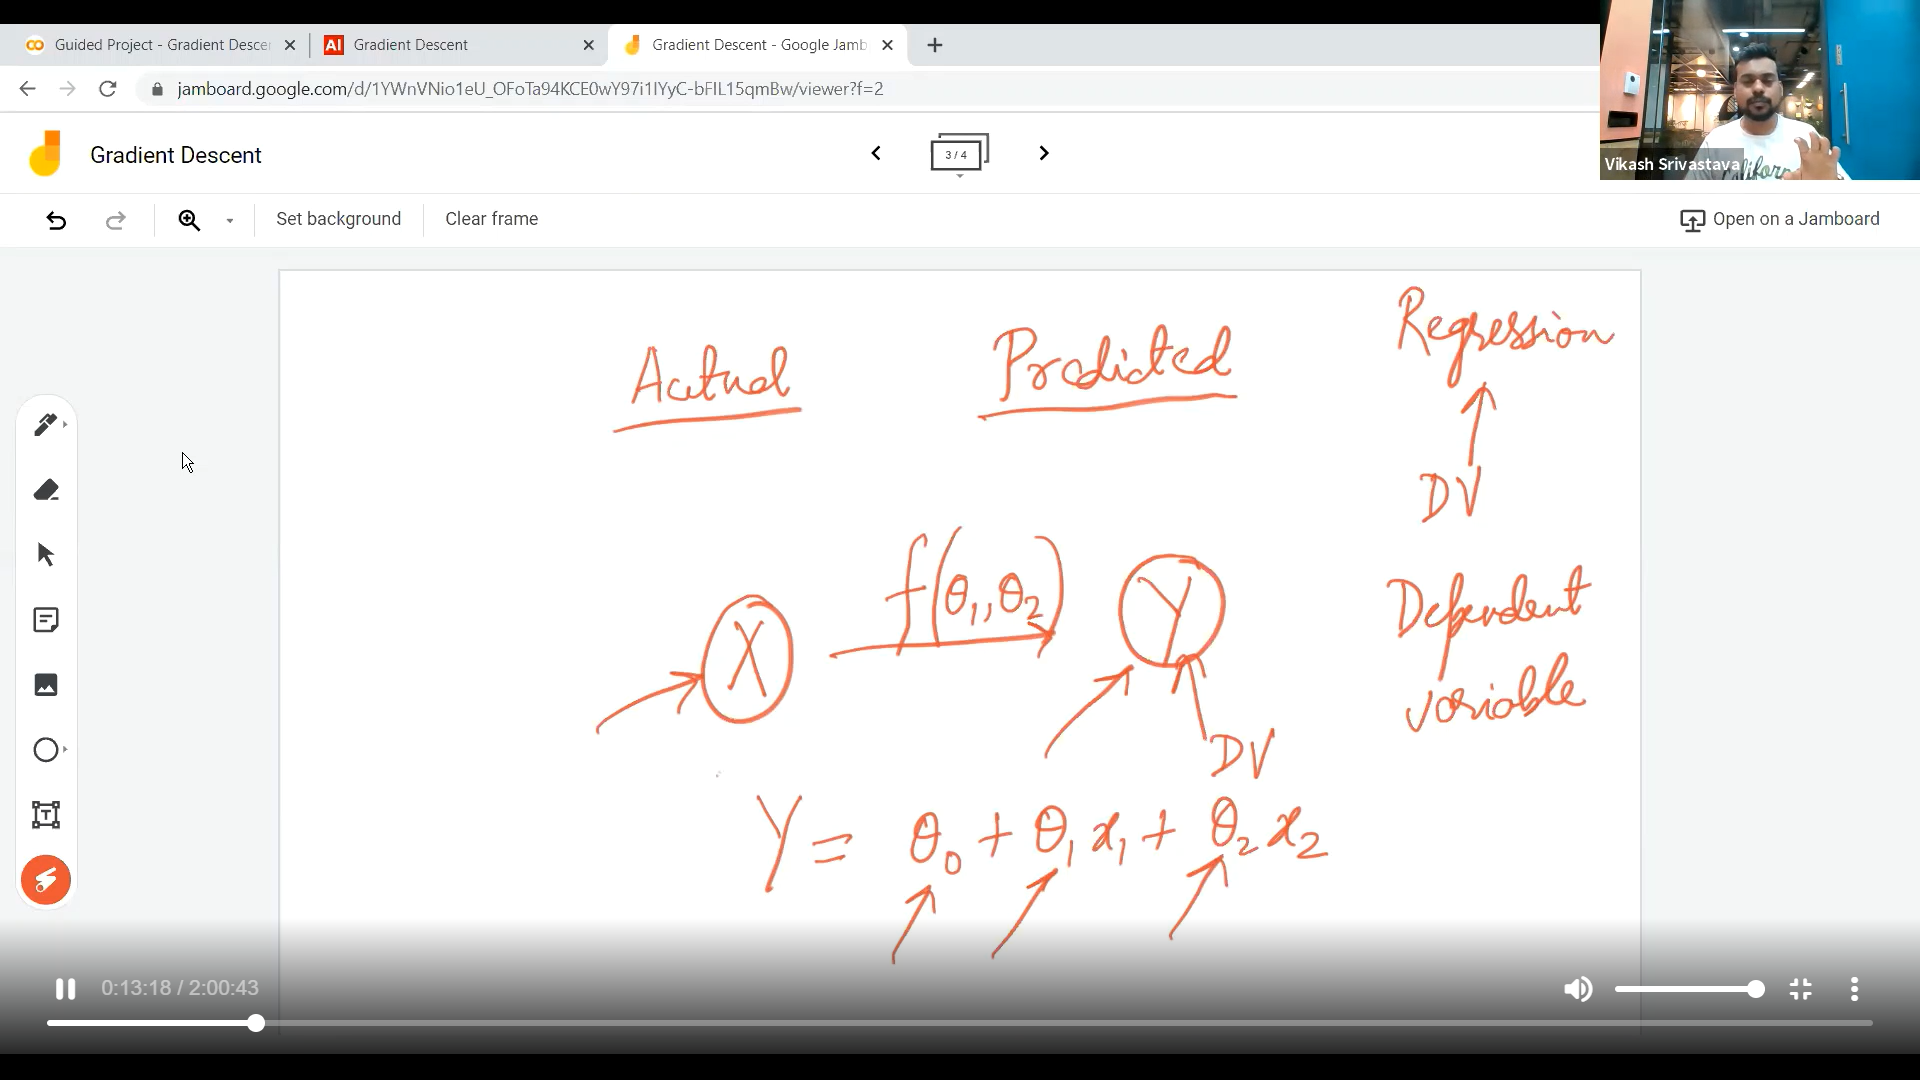 Guided Project - Gradient Descen
AI Gradient Descent
Gradient Descent - Google Jamb
jamboard.google.com/d/1YWnVNio1eU_OFoTa94KCE0wY97i1IYyC-bFIL15qmBw/viewer?f=2
Gradient Descent
3 / 4
Vikash Srivastava
Set background
Clear frame
Open on a Jamboard
Actual
Predicted
Regression
DV
X
f(θ₁, θ₂)
Y
DV
Dependent
variable
Y = θ₀ + θ₁ x₁ + θ₂ x₂
0:13:18 / 2:00:43